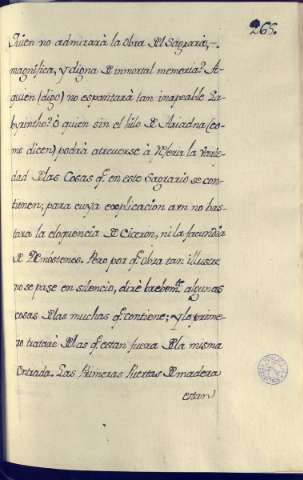 265.
Quien no admirarà la obra del Sagrario,
magnifica, y digna de inmortal memoria? A
quien (digo) no espantarà tam inapeable La-
byrintho? ò quien sin el hilo de Ariadna (co-
mo dicen) podrà atreverse à referir la varie-
dad de las Cosas q.e en este Sagrario se con-
tienen; para cuya explicacion aun no bas-
tara la eloquencia de Ciceron, ni la facundia
de Demóstenes. Pero por q.e obra tan illustre
no se pase en silencio, dirè brebem.te algunas
cosas de las muchas q.e contiene; y lo prime-
ro tratarè de las q.e estan fuera de la misma
Entrada. Las Primeras Puertas de madera
estan